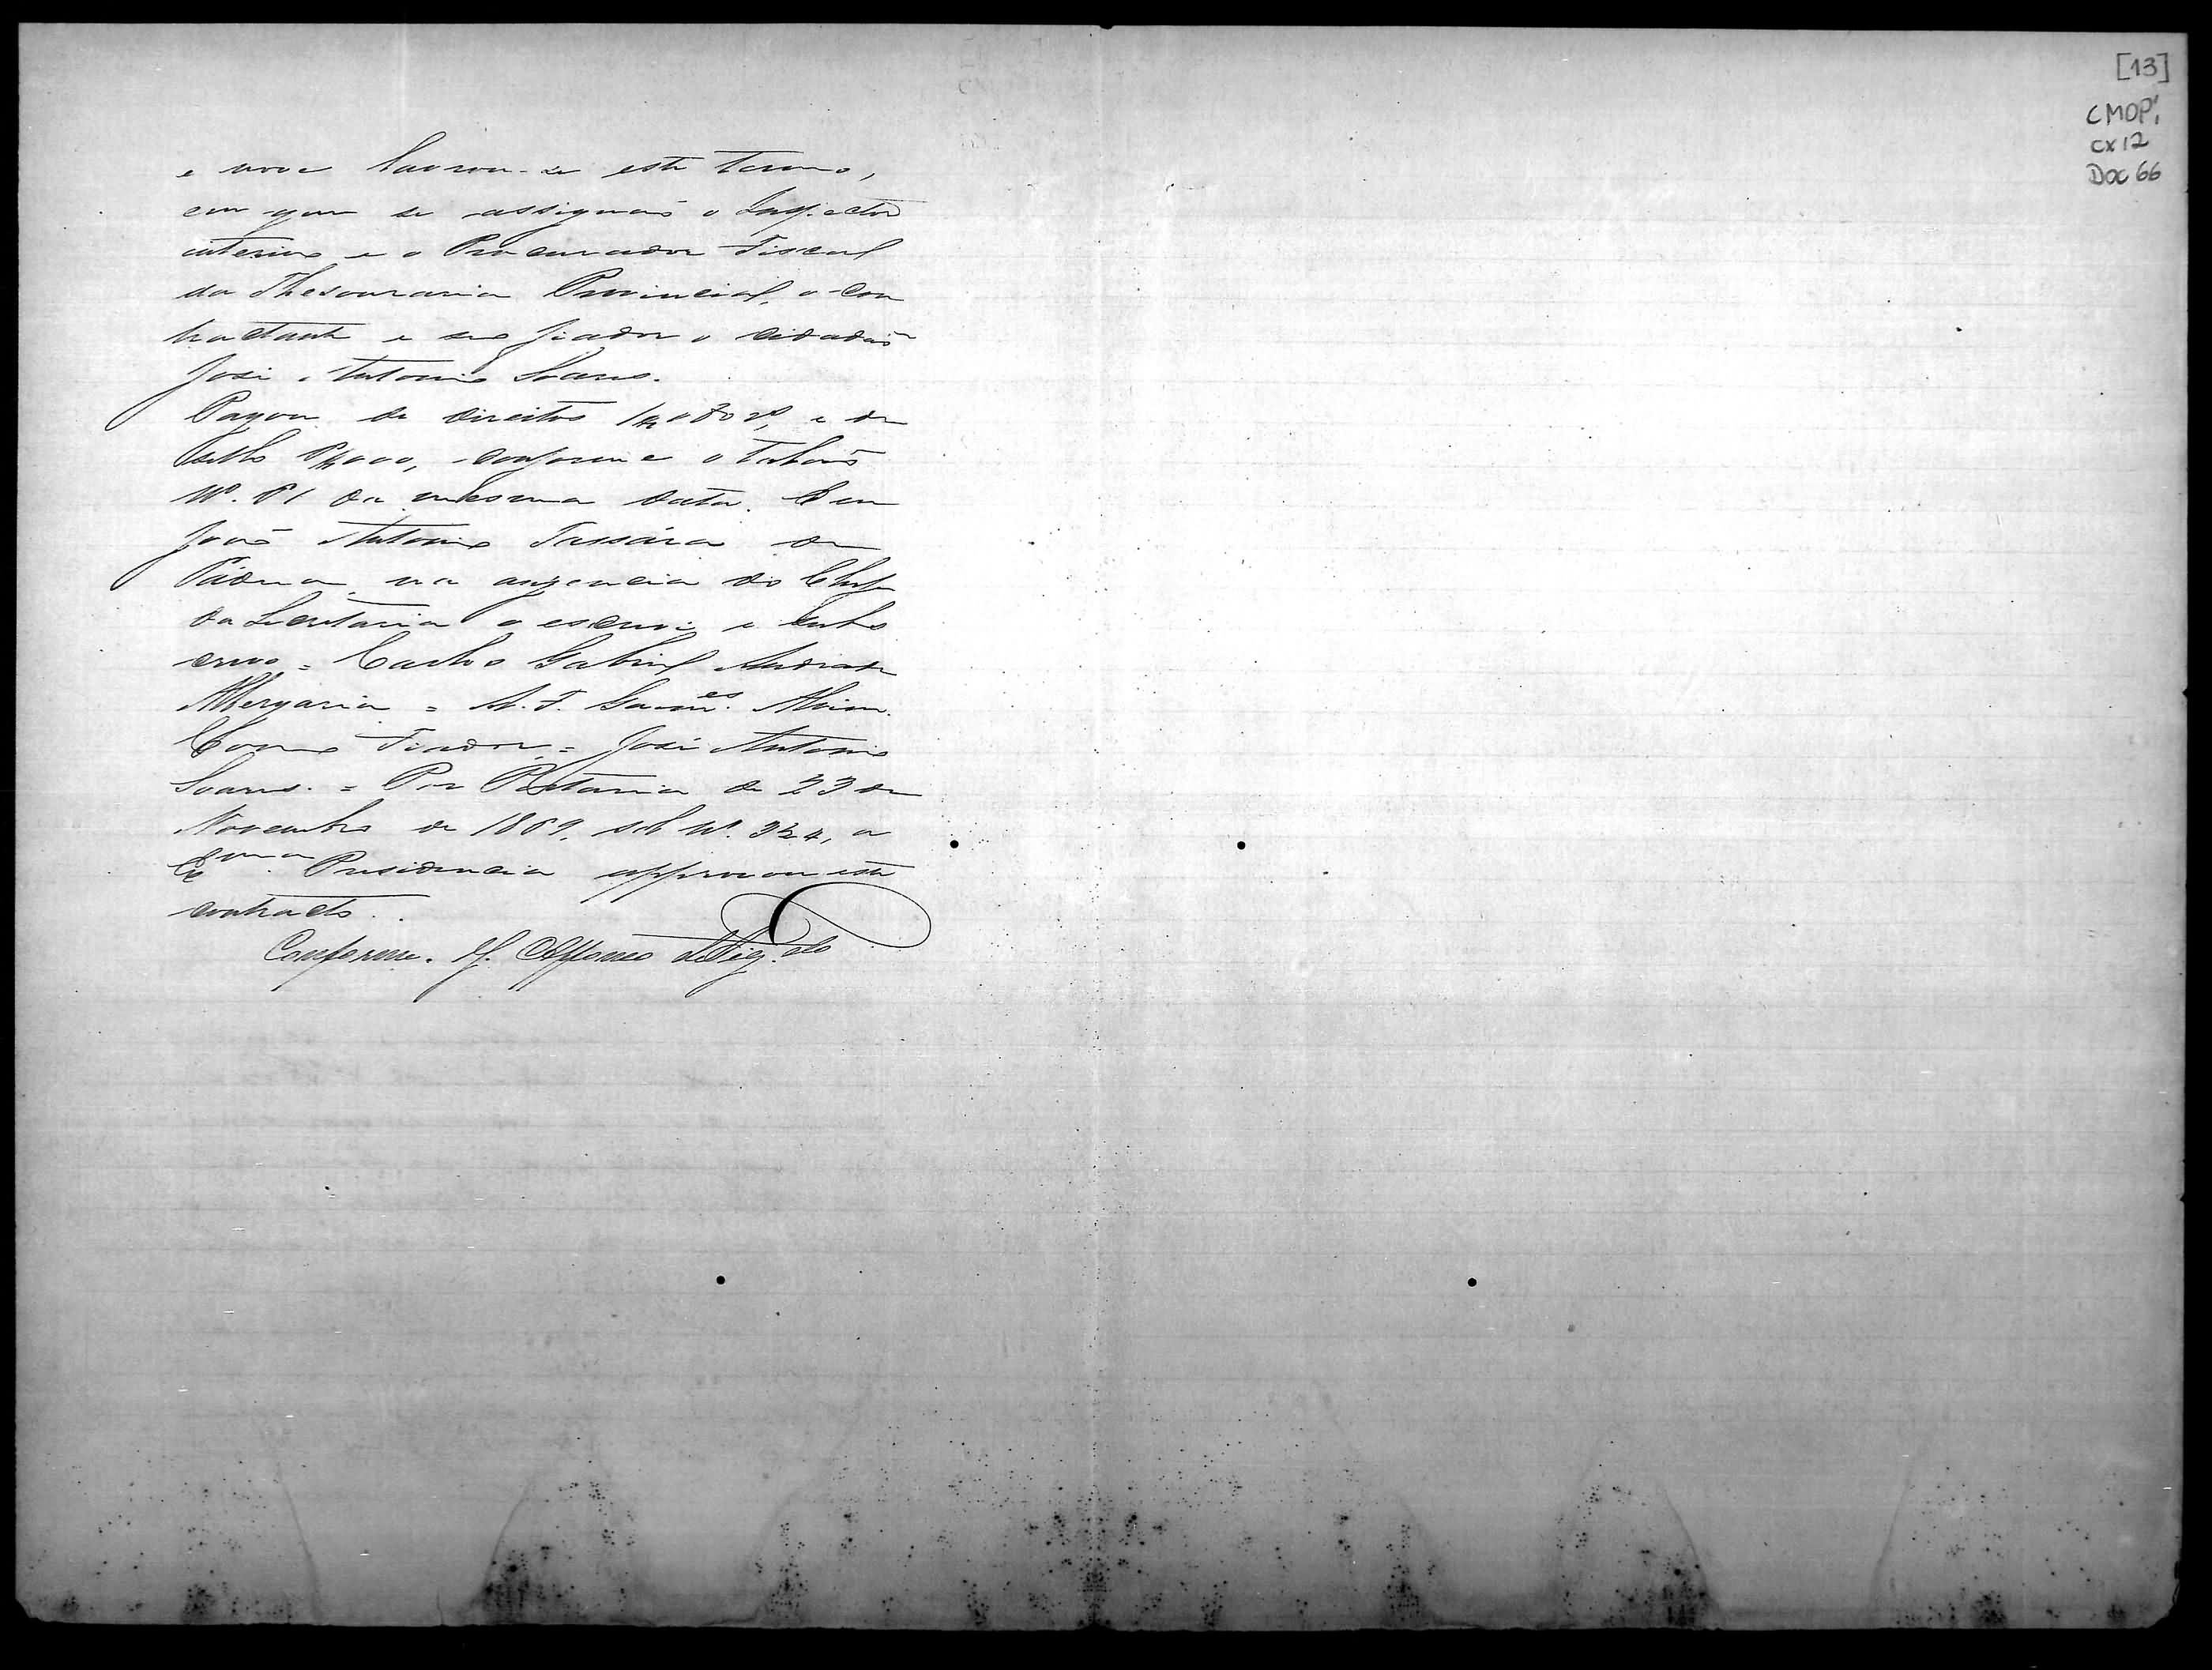 [13]
CMOP1
cx12
Doc 66
e nove lavrou-se este termo,
em que se assignão o Inspector
interino e o Procurador Fiscal
da Thesouraria Provincial, o con
tractante e seo fiador o cidadão
José Antonio Soares.
Pagou de direitos e de
sello conforme o talão
Nº. 81 da mesma data. Eu
João Antonio Tassára de
Pádua, na auzencia do Chefe
da Secretaria o escrevi e subs
crevo = Carlos Gabriel Andrade
Albergaria = A. F. Alvim.
Como Fiador = José Antonio
Soares. = Por Portaria de 23 de
Novembro de 1869, sob Nº. 324, a
Exma. Presidencia approvou este
contracto.
Conforme. Affonso